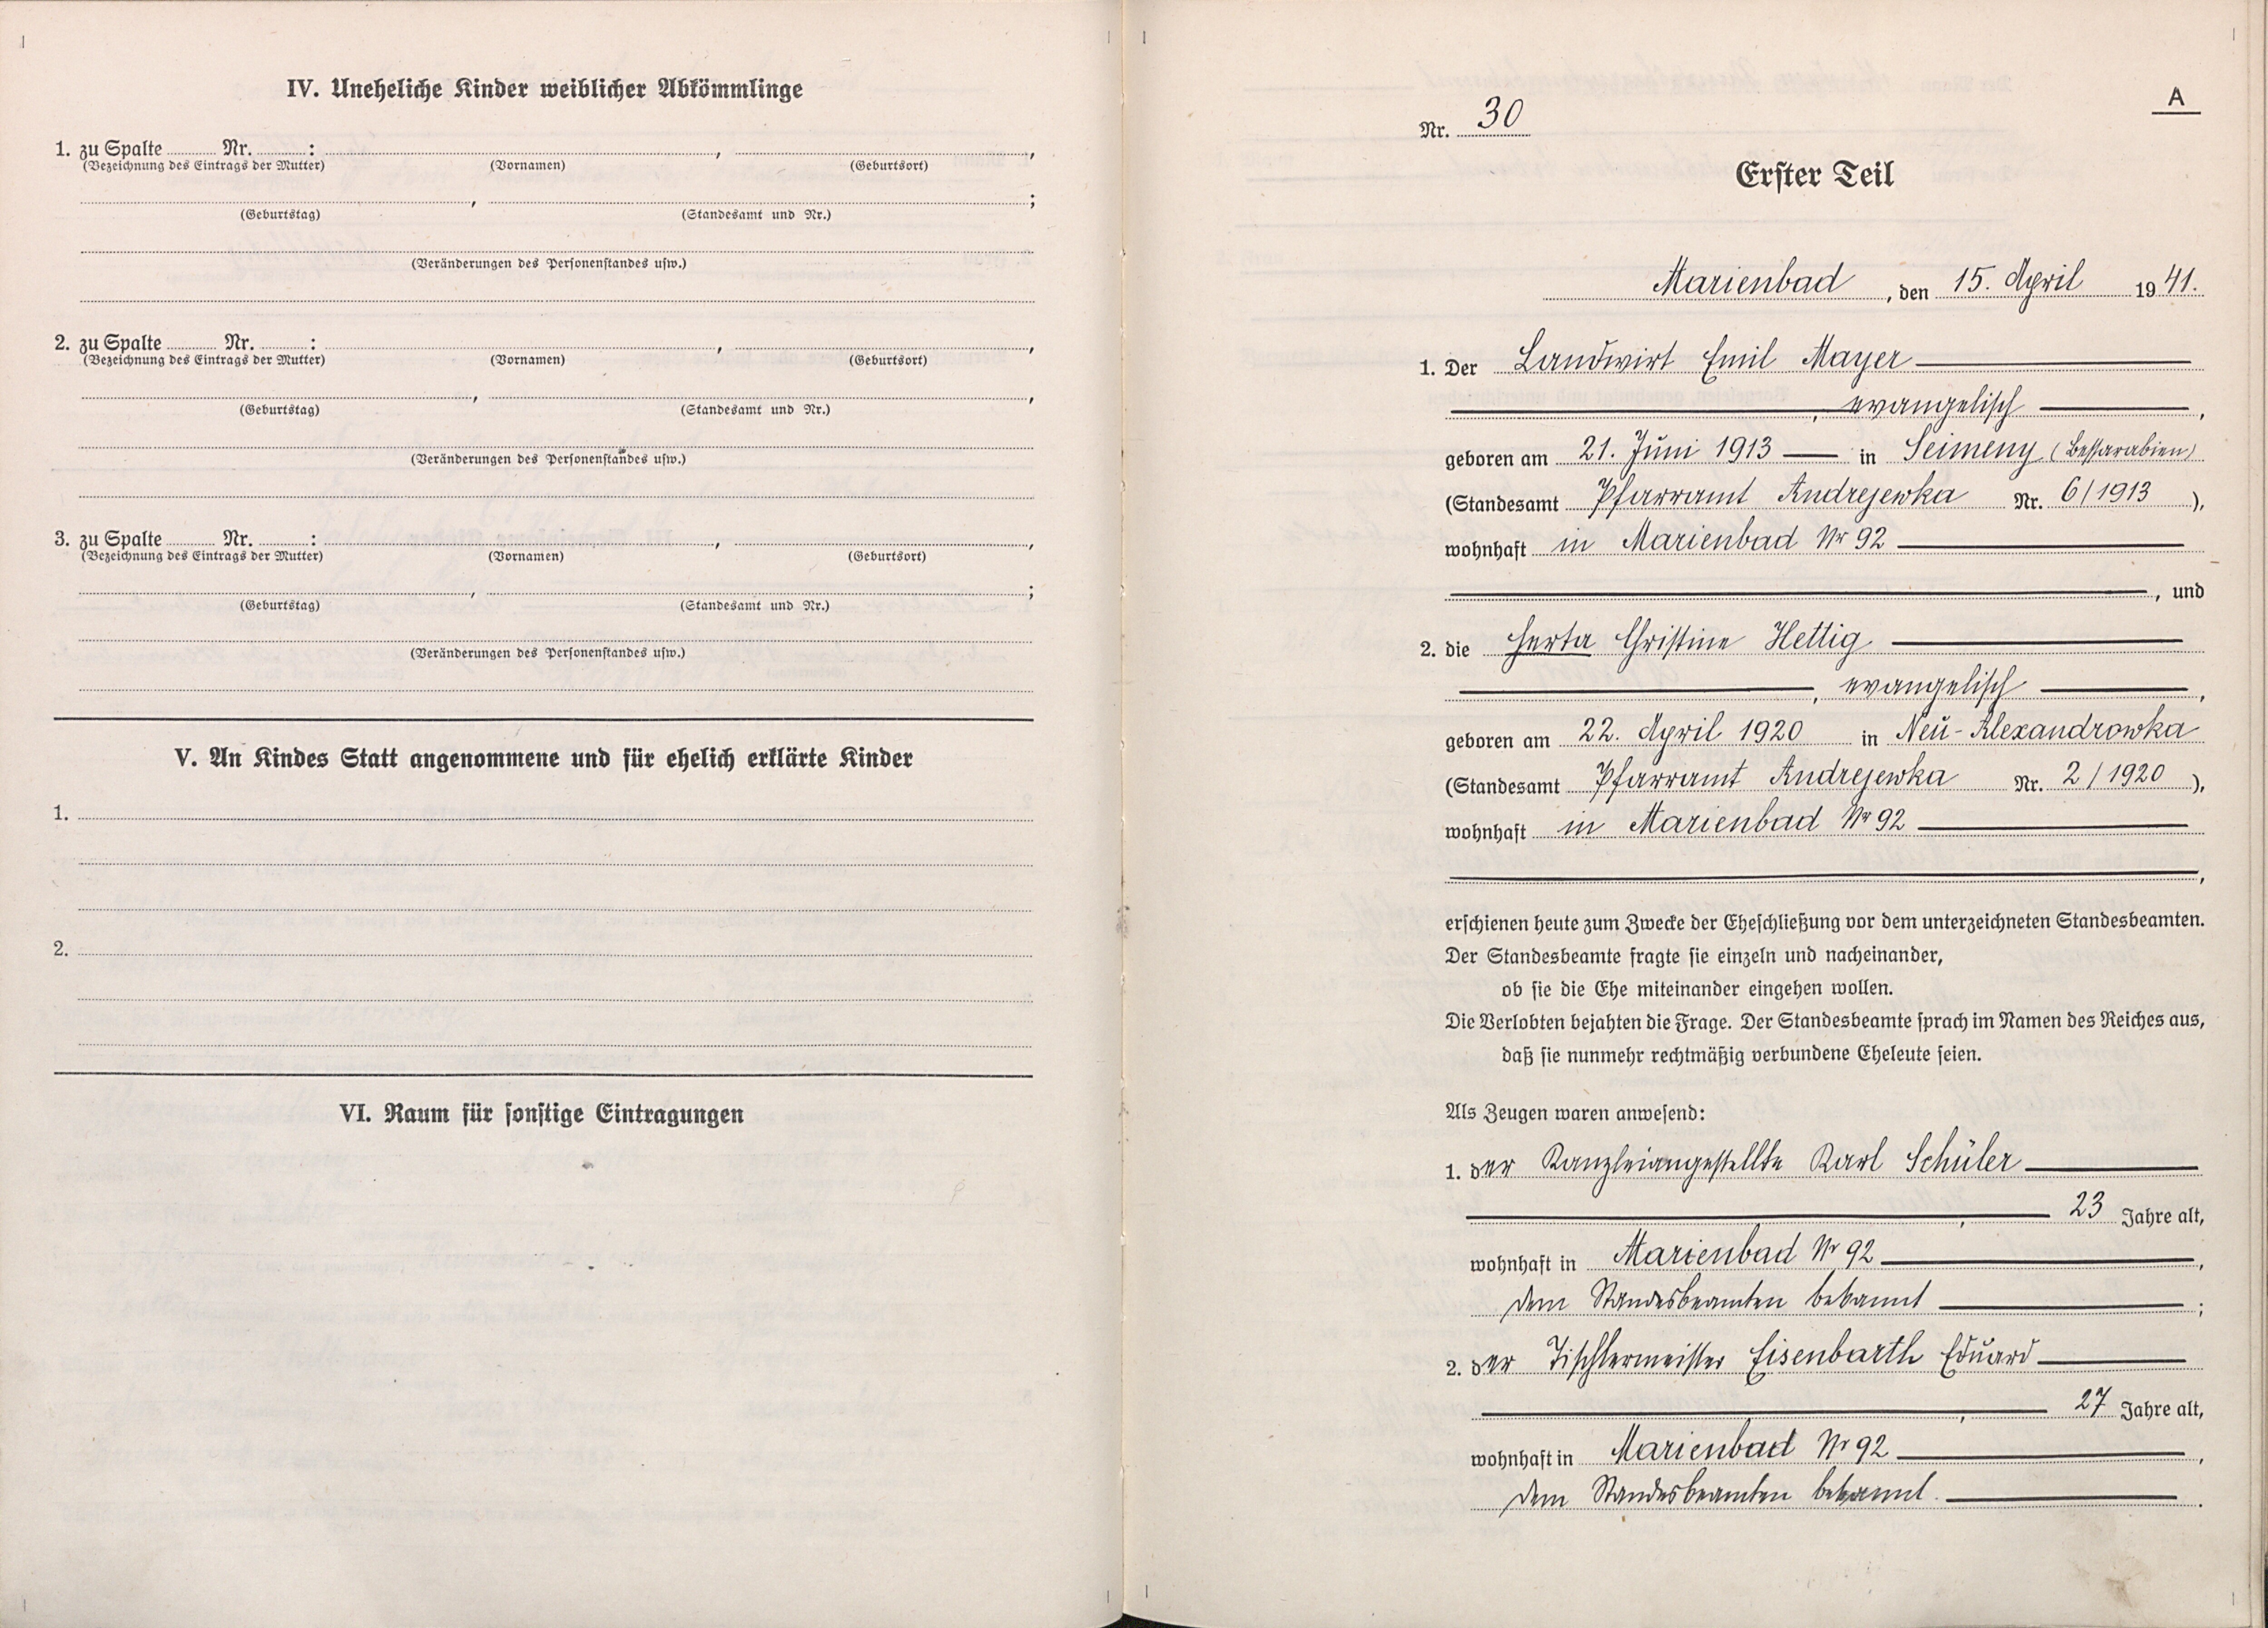 IV. Uneheliche Kinder weiblicher Abkömmlinge
1. zu Spalte ........ Nr. ........ : ........ , ........ ,
(Bezeichnung des Eintrags der Mutter) (Vornamen) (Geburtsort)
........ , ........ ;
(Geburtstag) (Standesamt und Nr.)
(Veränderungen des Personenstandes usw.)
2. zu Spalte ........ Nr. ........ : ........ , ........ ,
(Bezeichnung des Eintrags der Mutter) (Vornamen) (Geburtsort)
........ , ........ ,
(Geburtstag) (Standesamt und Nr.)
(Veränderungen des Personenstandes usw.)
3. zu Spalte ........ Nr. ........ : ........ , ........ ,
(Bezeichnung des Eintrags der Mutter) (Vornamen) (Geburtsort)
........ , ........ ;
(Geburtstag) (Standesamt und Nr.)
(Veränderungen des Personenstandes usw.)
V. An Kindes Statt angenommene und für ehelich erklärte Kinder
1.
2.
VI. Raum für sonstige Eintragungen
A
Nr. 30
Erster Teil
Marienbad , den 15. April 1941.
1. Der Landwirt Emil Mayer
, evangelisch ,
geboren am 21. Juni 1913 in Seimeny (Bessarabien)
(Standesamt Pfarramt Andrejewka Nr. 6/1913 ),
wohnhaft in Marienbad Nr 92
, und
2. die Herta Christine Hettig
, evangelisch ,
geboren am 22. April 1920 in Neu-Alexandrowka
(Standesamt Pfarramt Andrejewka Nr. 2/1920 ),
wohnhaft in Marienbad Nr 92
,
erschienen heute zum Zwecke der Eheschließung vor dem unterzeichneten Standesbeamten.
Der Standesbeamte fragte sie einzeln und nacheinander,
ob sie die Ehe miteinander eingehen wollen.
Die Verlobten bejahten die Frage. Der Standesbeamte sprach im Namen des Reiches aus,
daß sie nunmehr rechtmäßig verbundene Eheleute seien.
Als Zeugen waren anwesend:
1. der Kanzleiangestellte Karl Schüler
, 23 Jahre alt,
wohnhaft in Marienbad Nr 92 ,
dem Standesbeamten bekannt ;
2. der Tischlermeister Eisenbarth Eduard
, 27 Jahre alt,
wohnhaft in Marienbad Nr 92 ,
dem Standesbeamten bekannt.